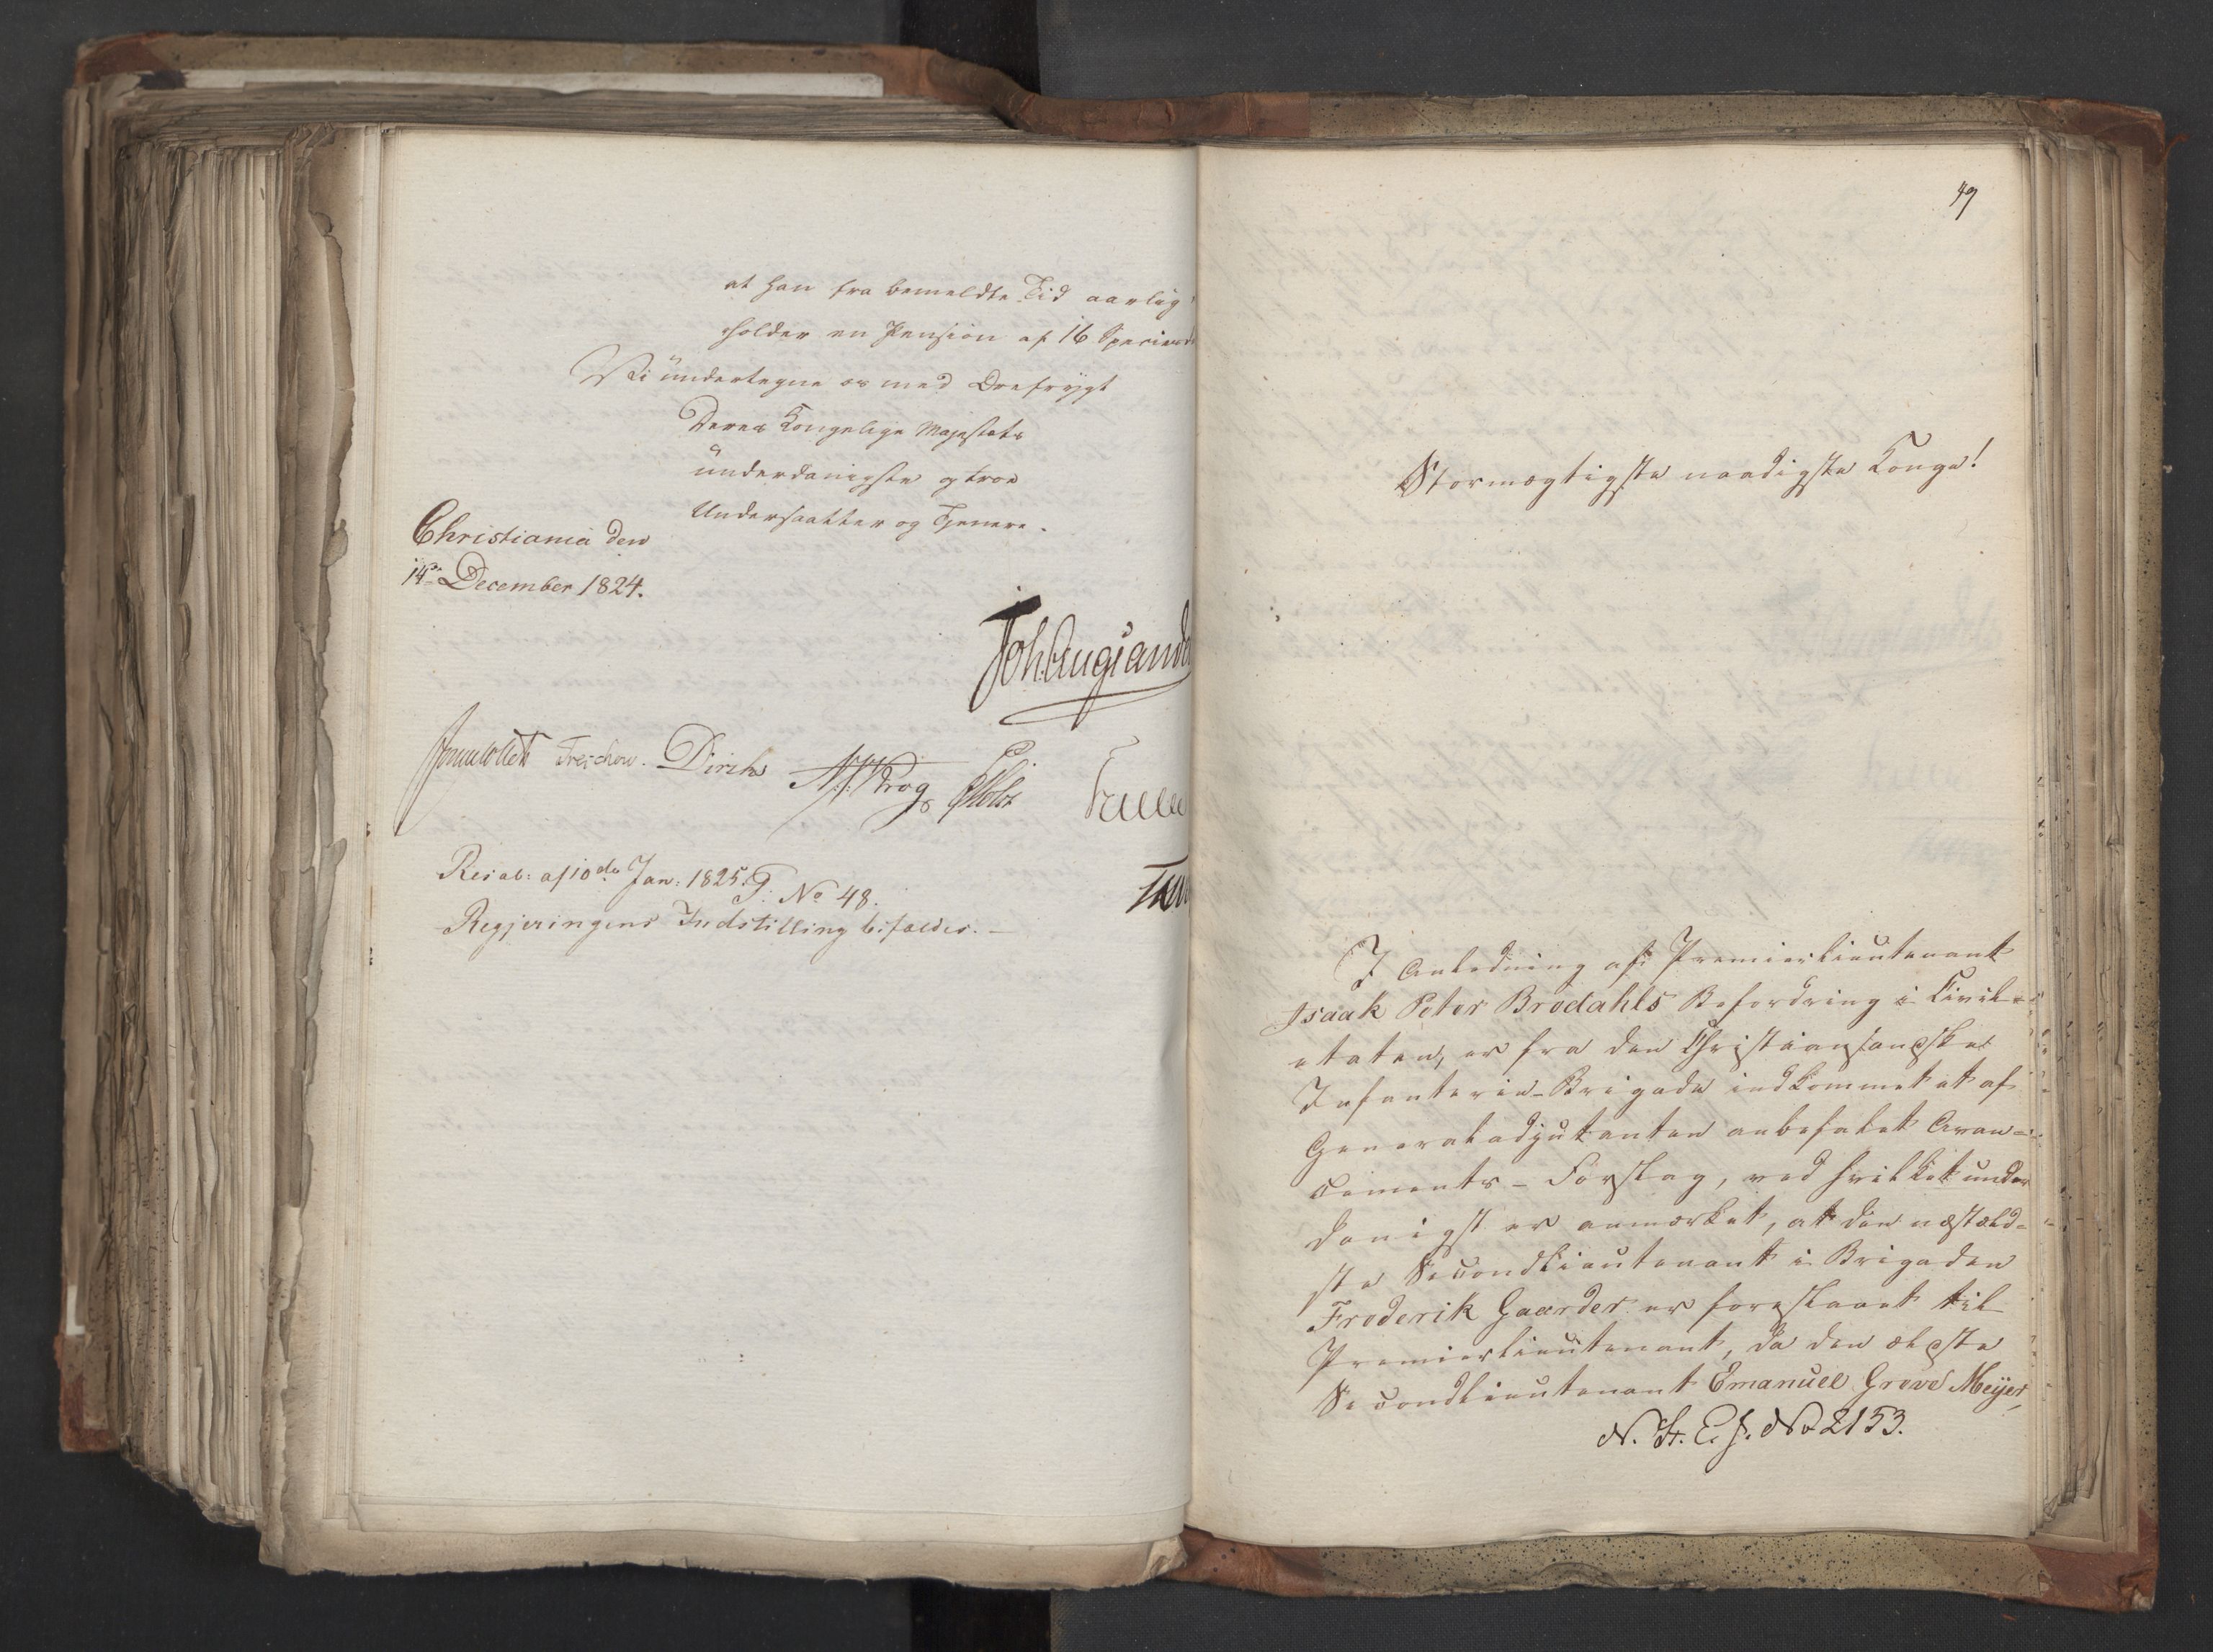 at han fra bemeldte Tid aarlig
holder en Pension af 16 Species
Vi undertegne os med Ærefrygt
Deres Kongelige Majestæts
underdanigste og troe
Undersaatter og Tjenere.
Christiania den
14de December 1824.
Joh. Aug. Sande
Jonas Collett Treschow. Diriks Krog Holst
Resol: af 10de Jan: 1825. No 48.
Regjeringens Indstilling bifaldes. —
49
Stormægtigste naadigste Konge!
I Anledning af Premierlieutenant
Isaak Peter Brodahls Befordring i Civil-
etaten, er fra den Christiansandske
Infanterie-Brigade indkommet et af
Generaladjutanten anbefalet Avan-
cements-Forslag, ved hvilket under
danigst er anmærket, at den næstæld-
ste Secondlieutenant i Brigaden
Frederik Gaarder er foreslaaet til
Premierlieutenant, da den ældste
Secondlieutenant Emanuel Grove Meyer,
N. St. E. J. No 2153.